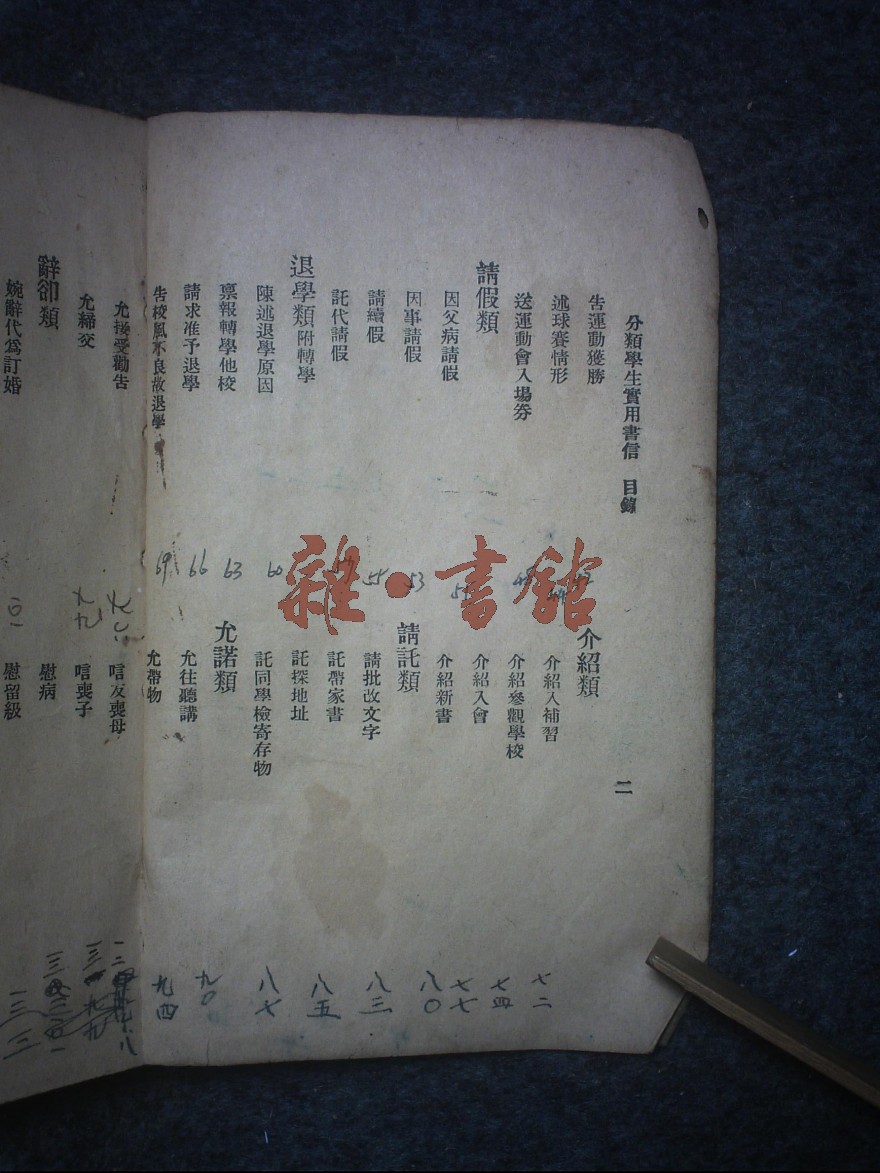 分類學生實用書信 目錄 二
告運動獲勝
述球賽情形
送運動會入場券
請假類
因父病請假
因事請假
請續假
託代請假
退學類 附轉學
陳述退學原因
稟報轉學他校
請求准予退學
告校風不良故退學
介紹類
介紹入補習
介紹參觀學校
介紹入會
介紹新書
請託類
請批改文字
託帶家書
託探地址
託同學檢寄存物
允諾類
允往聽講
允帶物
53
60
63
66
69
七二
七四
七七
八〇
八三
八五
八七
九〇
九四
允接受勸告
允締交
辭卻類
婉辭代爲訂婚
唁友喪母
唁喪子
慰病
慰留級
雜·書館